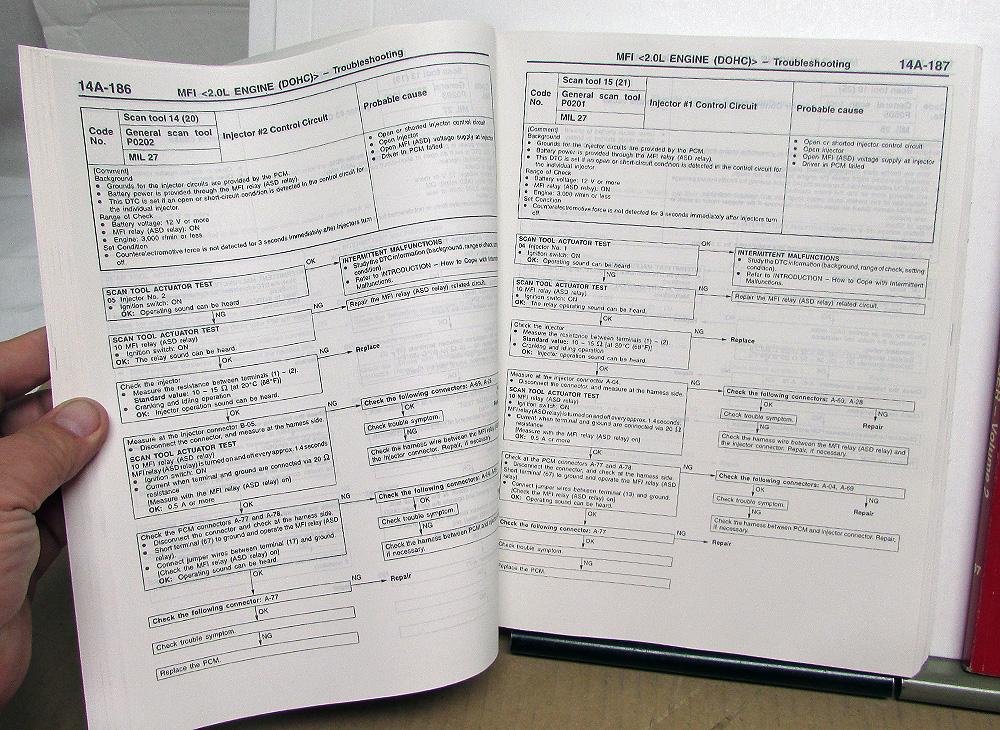 14A-186
MFI <2.0L ENGINE (DOHC)> – Troubleshooting
Code No.
Scan tool 14 (20)
General scan tool P0202
MIL 27
Injector #2 Control Circuit
Probable cause
[Comment]
Background
● Grounds for the injector circuits are provided by the PCM.
● Battery power is provided through the MFI relay (ASD relay).
● This DTC is set if an open or short-circuit condition is detected in the control circuit for
the individual injector.
Range of Check
● Battery voltage: 12 V or more
● MFI relay (ASD relay): ON
● Engine: 3,000 r/min or less
Set Condition
● Counterelectromotive force is not detected for 3 seconds immediately after injectors turn
off.
● Open or shorted injector control circuit
● Open injector
● Open MFI (ASD) voltage supply at injector
● Driver in PCM failed
SCAN TOOL ACTUATOR TEST
05 Injector No. 2
● Ignition switch: ON
OK: Operating sound can be heard.
OK
INTERMITTENT MALFUNCTIONS
● Study the DTC information (background, range of check,
condition).
● Refer to INTRODUCTION – How to Cope with
Malfunctions.
NG
SCAN TOOL ACTUATOR TEST
10 MFI relay (ASD relay)
● Ignition switch: ON
OK: The relay sound can be heard.
NG
Repair the MFI relay (ASD relay) related circuit.
OK
Check the injector
● Measure the resistance between terminals (1) – (2).
Standard value: 10 – 15 Ω [at 20°C (68°F)]
● Cranking and idling operation
OK: Injector operation sound can be heard.
NG
Replace
OK
Measure at the injector connector B-05.
● Disconnect the connector, and measure at the harness side.
SCAN TOOL ACTUATOR TEST
10 MFI relay (ASD relay)
MFI relay (ASD relay) is turned on and off every approx. 1.4 seconds
● Ignition switch: ON
● Current when terminal and ground are connected via 20 Ω
resistance
[Measure with the MFI relay (ASD relay) on]
OK: 0.5 A or more
NG
Check the following connectors: A-69,
OK
Check trouble symptom.
NG
Check the harness wire between the MFI relay
the injector connector. Repair, if necessary.
OK
Check the PCM connectors A-77 and A-78.
● Disconnect the connector and check at the harness side.
● Short terminal (67) to ground and operate the MFI relay (ASD
relay).
● Connect jumper wires between terminal (17) and ground.
[Check the MFI relay (ASD relay) on]
OK: Operating sound can be heard.
NG
Check the following connectors:
OK
Check trouble symptom.
NG
Check the harness between PCM and
if necessary.
OK
Check the following connector: A-77
NG
Repair
OK
Check trouble symptom.
NG
Replace the PCM.
MFI <2.0L ENGINE (DOHC)> – Troubleshooting
14A-187
Code No.
Scan tool 15 (21)
General scan tool P0201
MIL 27
Injector #1 Control Circuit
Probable cause
[Comment]
Background
● Grounds for the injector circuits are provided by the PCM.
● Battery power is provided through the MFI relay (ASD relay).
● This DTC is set if an open or short-circuit condition is detected in the control circuit for
the individual injector
Range of Check
● Battery voltage: 12 V or more
● MFI relay (ASD relay): ON
● Engine: 3,000 r/min or less
Set Condition
● Counterelectromotive force is not detected for 3 seconds immediately after injectors turn
off.
● Open or shorted injector control circuit
● Open injector
● Open MFI (ASD) voltage supply at injector
● Driver in PCM failed
SCAN TOOL ACTUATOR TEST
04 Injector No. 1
● Ignition switch: ON
OK: Operating sound can be heard.
OK
INTERMITTENT MALFUNCTIONS
● Study the DTC information (background, range of check, setting
condition).
● Refer to INTRODUCTION – How to Cope with Intermittent
Malfunctions.
NG
SCAN TOOL ACTUATOR TEST
10 MFI relay (ASD relay)
● Ignition switch: ON
OK: The relay sound can be heard.
NG
Repair the MFI relay (ASD relay) related circuit.
OK
Check the injector
● Measure the resistance between terminals (1) – (2).
Standard value: 10 – 15 Ω [at 20°C (68°F)]
● Cranking and idling operation
OK: Injector operation sound can be heard.
NG
Replace
OK
Measure at the injector connector A-04.
● Disconnect the connector, and measure at the harness side.
SCAN TOOL ACTUATOR TEST
10 MFI relay (ASD relay)
● Ignition switch: ON
MFI relay (ASD relay) is turned on and off every approx. 1.4 seconds
● Current when terminal and ground are connected via 20 Ω
resistance
[Measure with the MFI relay (ASD relay) on]
OK: 0.5 A or more
NG
Check the following connectors: A-69, A-28
OK
NG
Check trouble symptom.
Repair
NG
Check the harness wire between the MFI relay (ASD relay) and
the injector connector. Repair, if necessary.
OK
Check at the PCM connectors A-77 and A-78.
● Disconnect the connector, and check at the harness side.
Short terminal (67) to ground and operate the MFI relay (ASD
relay)
● Connect jumper wires between terminal (13) and ground.
[Check the MFI relay (ASD relay) on]
OK: Operating sound can be heard.
NG
Check the following connectors: A-04, A-69
OK
NG
Check trouble symptom.
Repair
NG
Check the harness between PCM and injector connector. Repair,
if necessary.
OK
Check the following connector: A-77
NG
Repair
OK
Check trouble symptom.
NG
Replace the PCM.
Volume 2